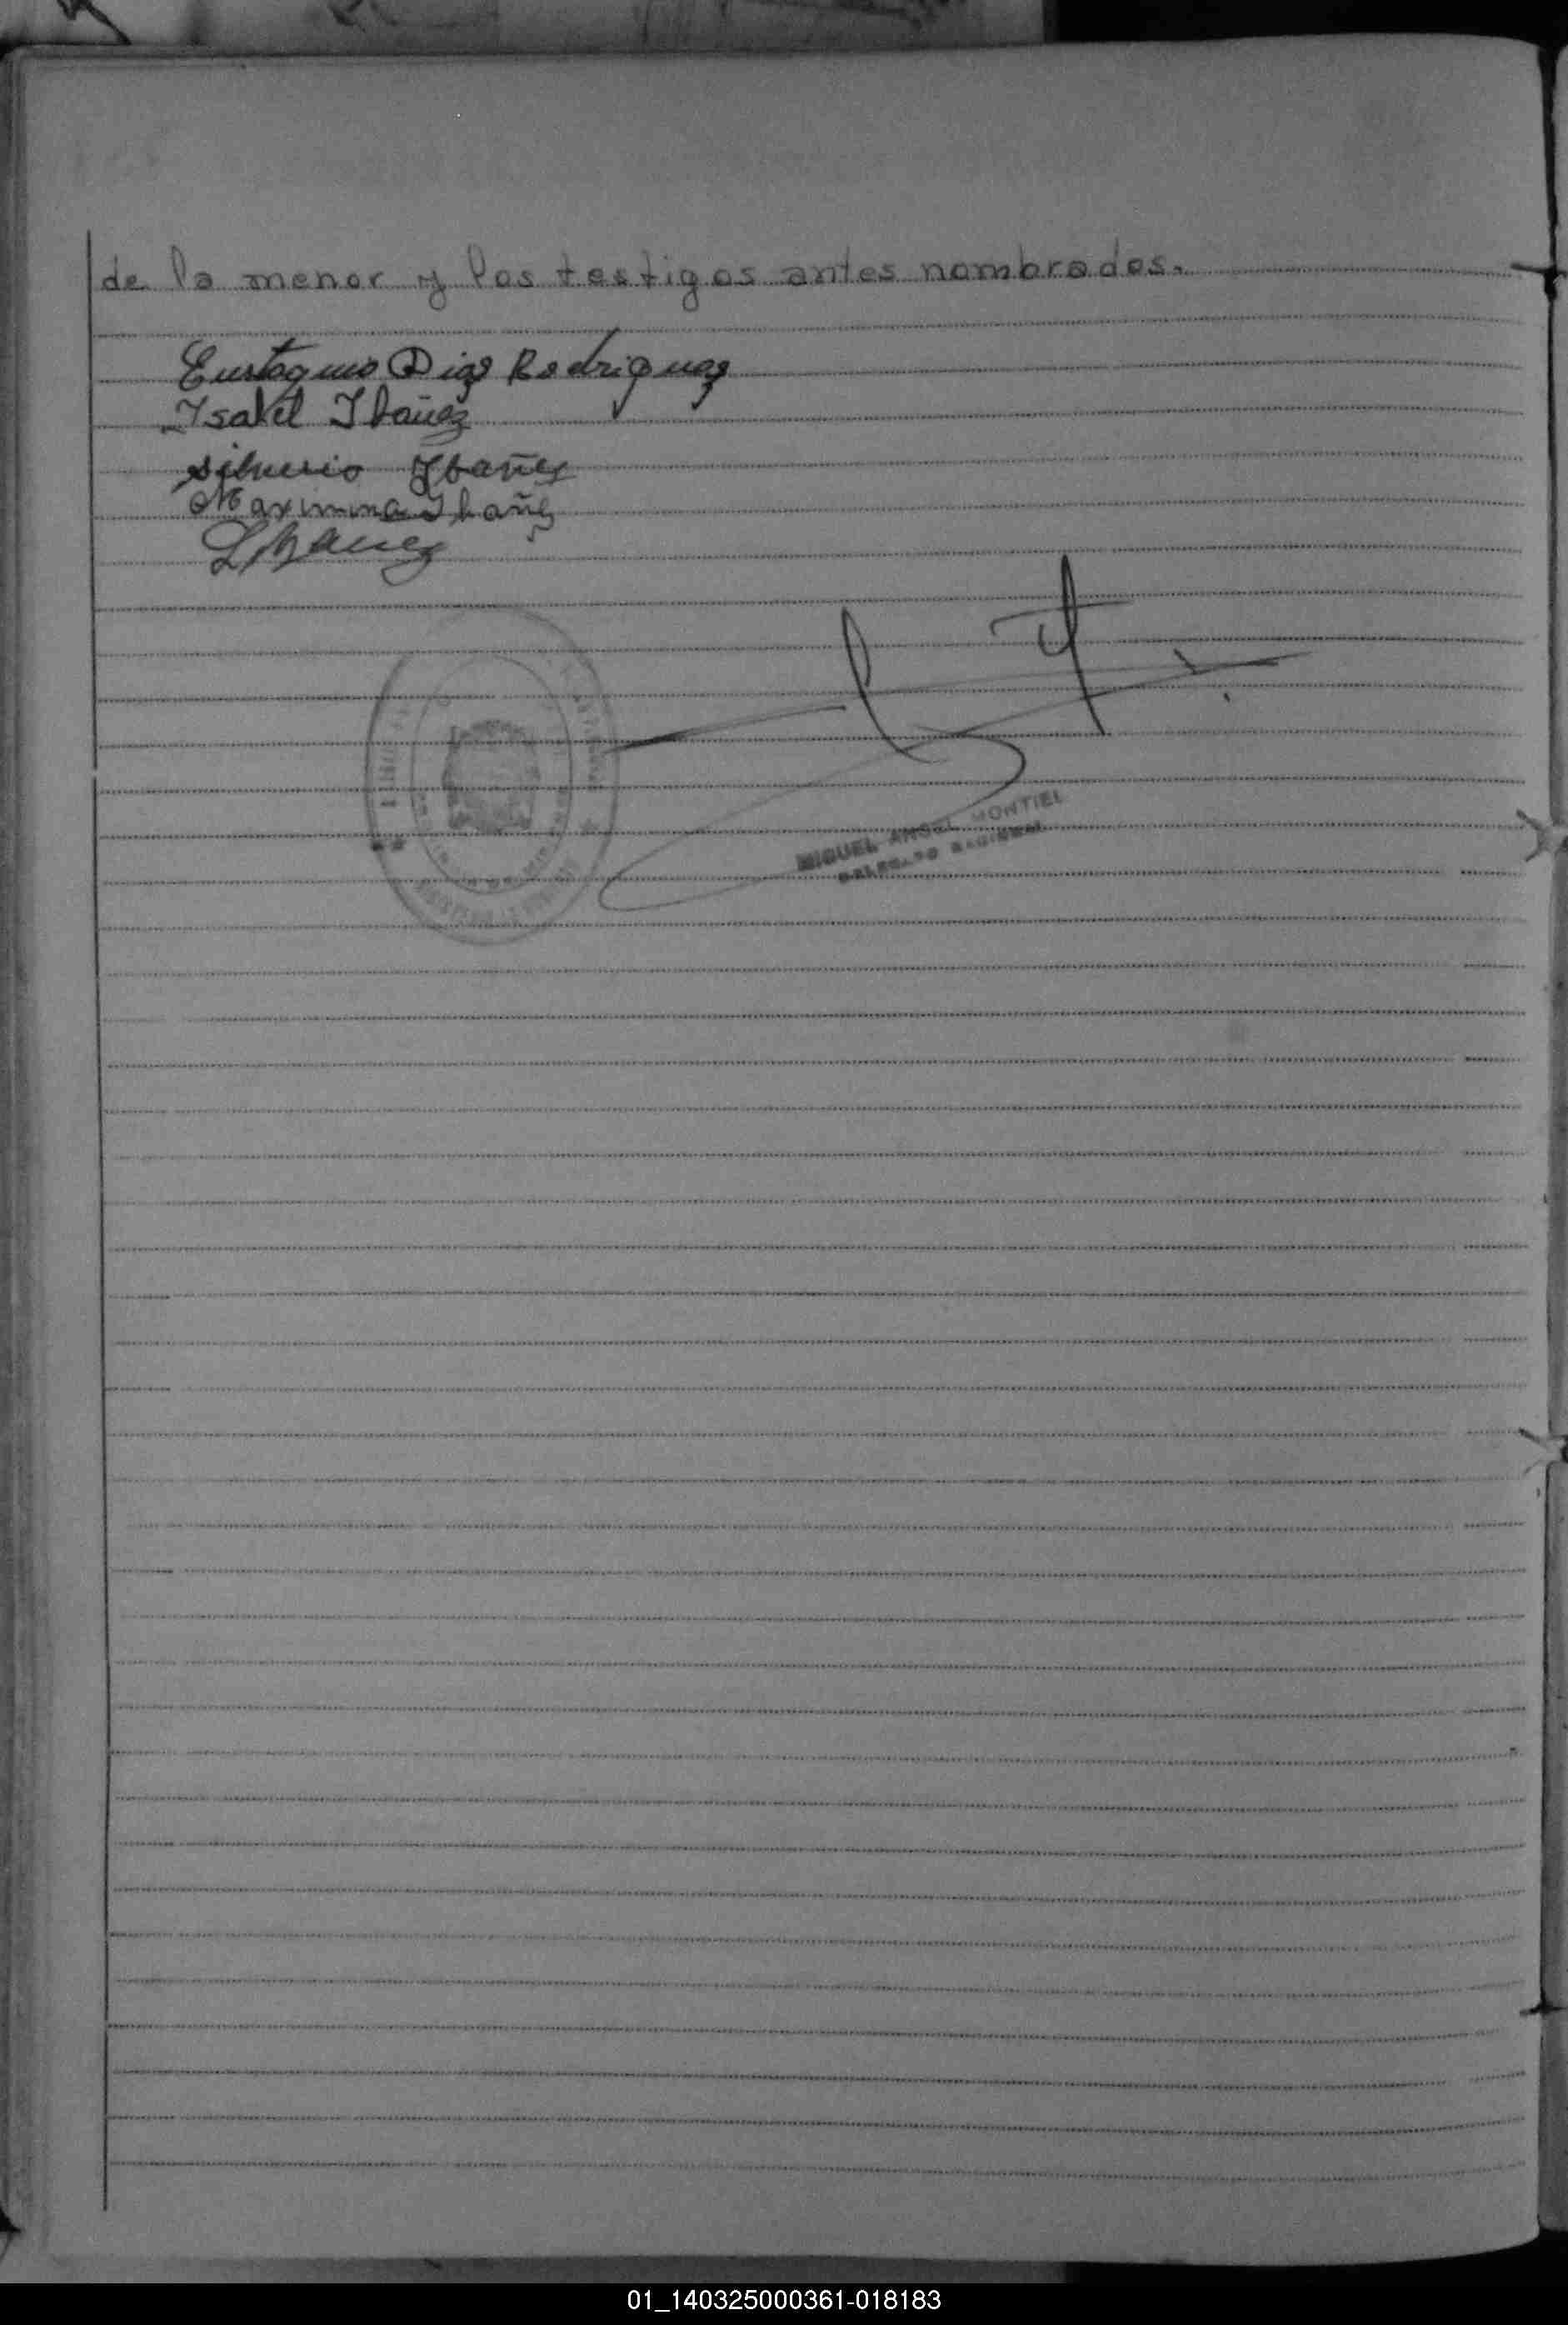 de la menor y los testigos antes nombrados.
Eustaquio Diaz Rodriguez
Ysabel Ibañez
Silverio Ybañez
Maximina Ibañez
Ibañez
MIGUEL ANGEL MONTIEL
DELEGADO REGIONAL
01_140325000361-018183